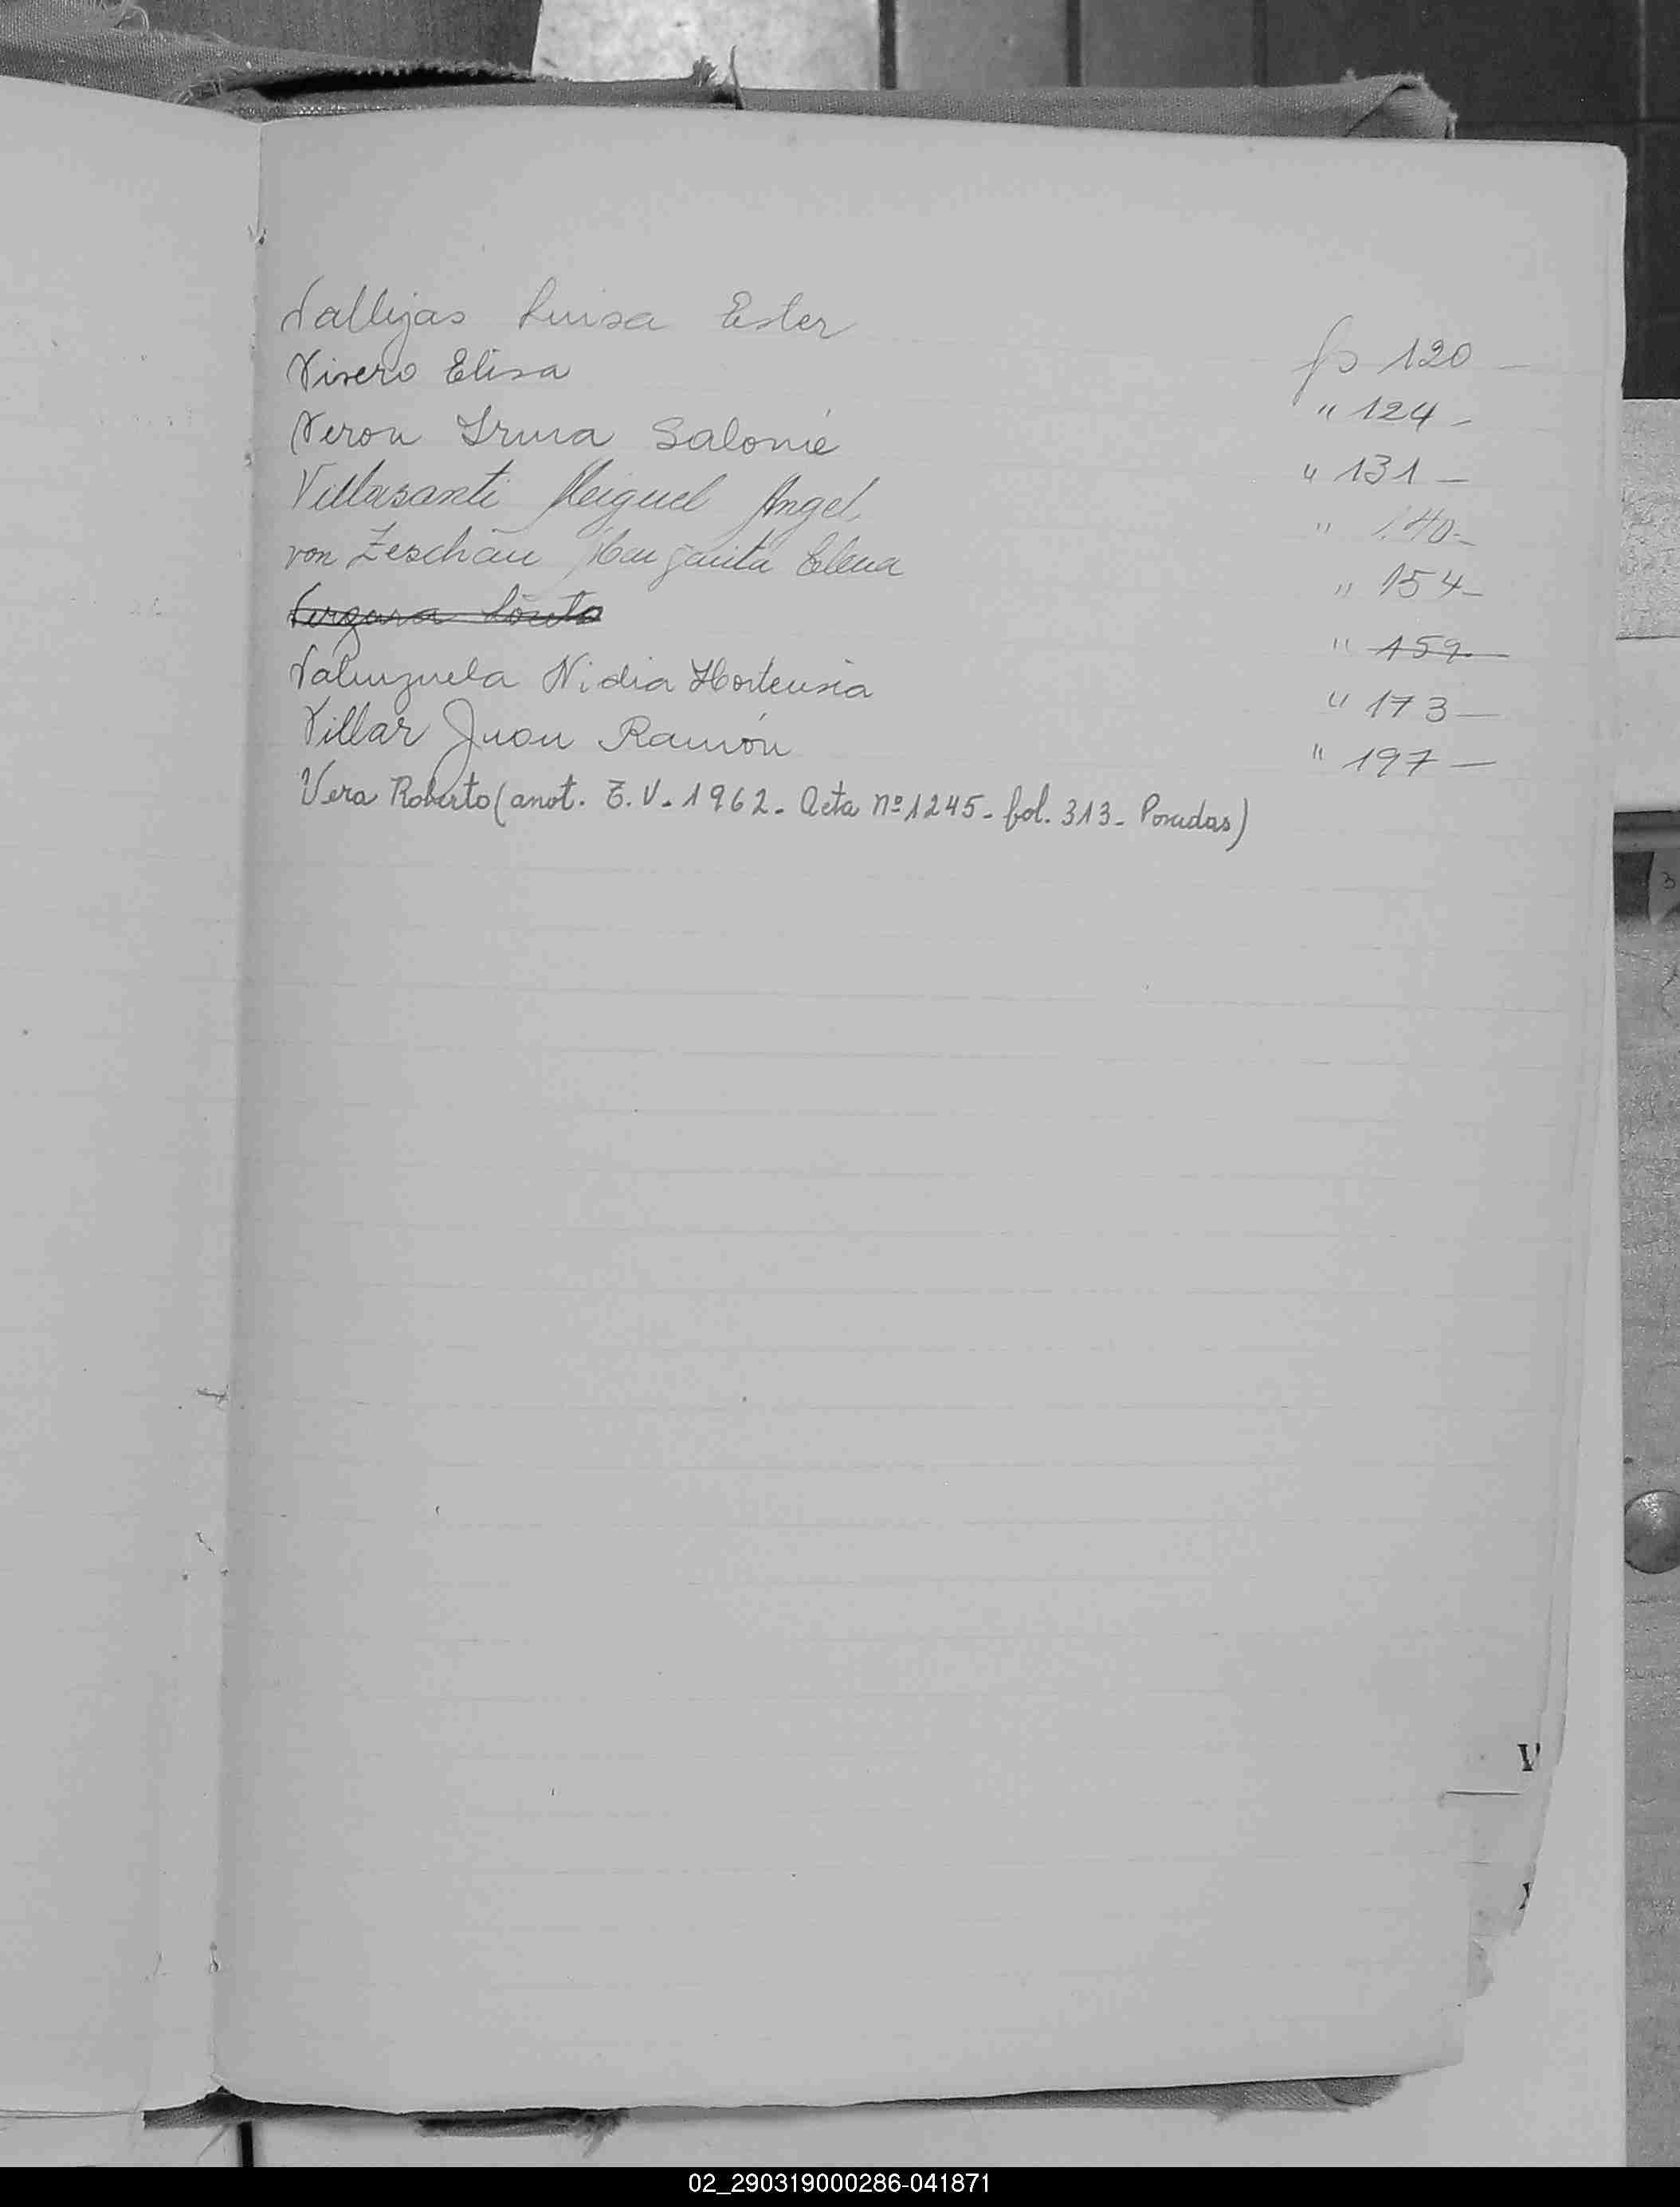 Vallejas Luisa Ester fs 120 —
Visero Elisa " 124 -
Veron Irma Salomé " 131 —
Villasanti Miguel Angel " 140 -
von Zeschau Margarita Elena " 154 -
Vergara " 159 -
Valenzuela Nidia Hortensia " 173 —
Villar Juan Ramón " 197 —
Vera Roberto (anot. E. V. 1962 - Acta nº 1245 - fol. 313 - Posadas)
V
02_290319000286-041871